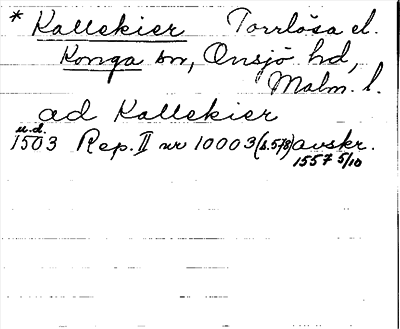 * Kallekier Torrlösa el.
Konga sn, Onsjö hd,
Malm. l.
ad Kallekier
u.d.
1503 Rep. II nr 10003 (s. 578) avskr.
1557 5/10